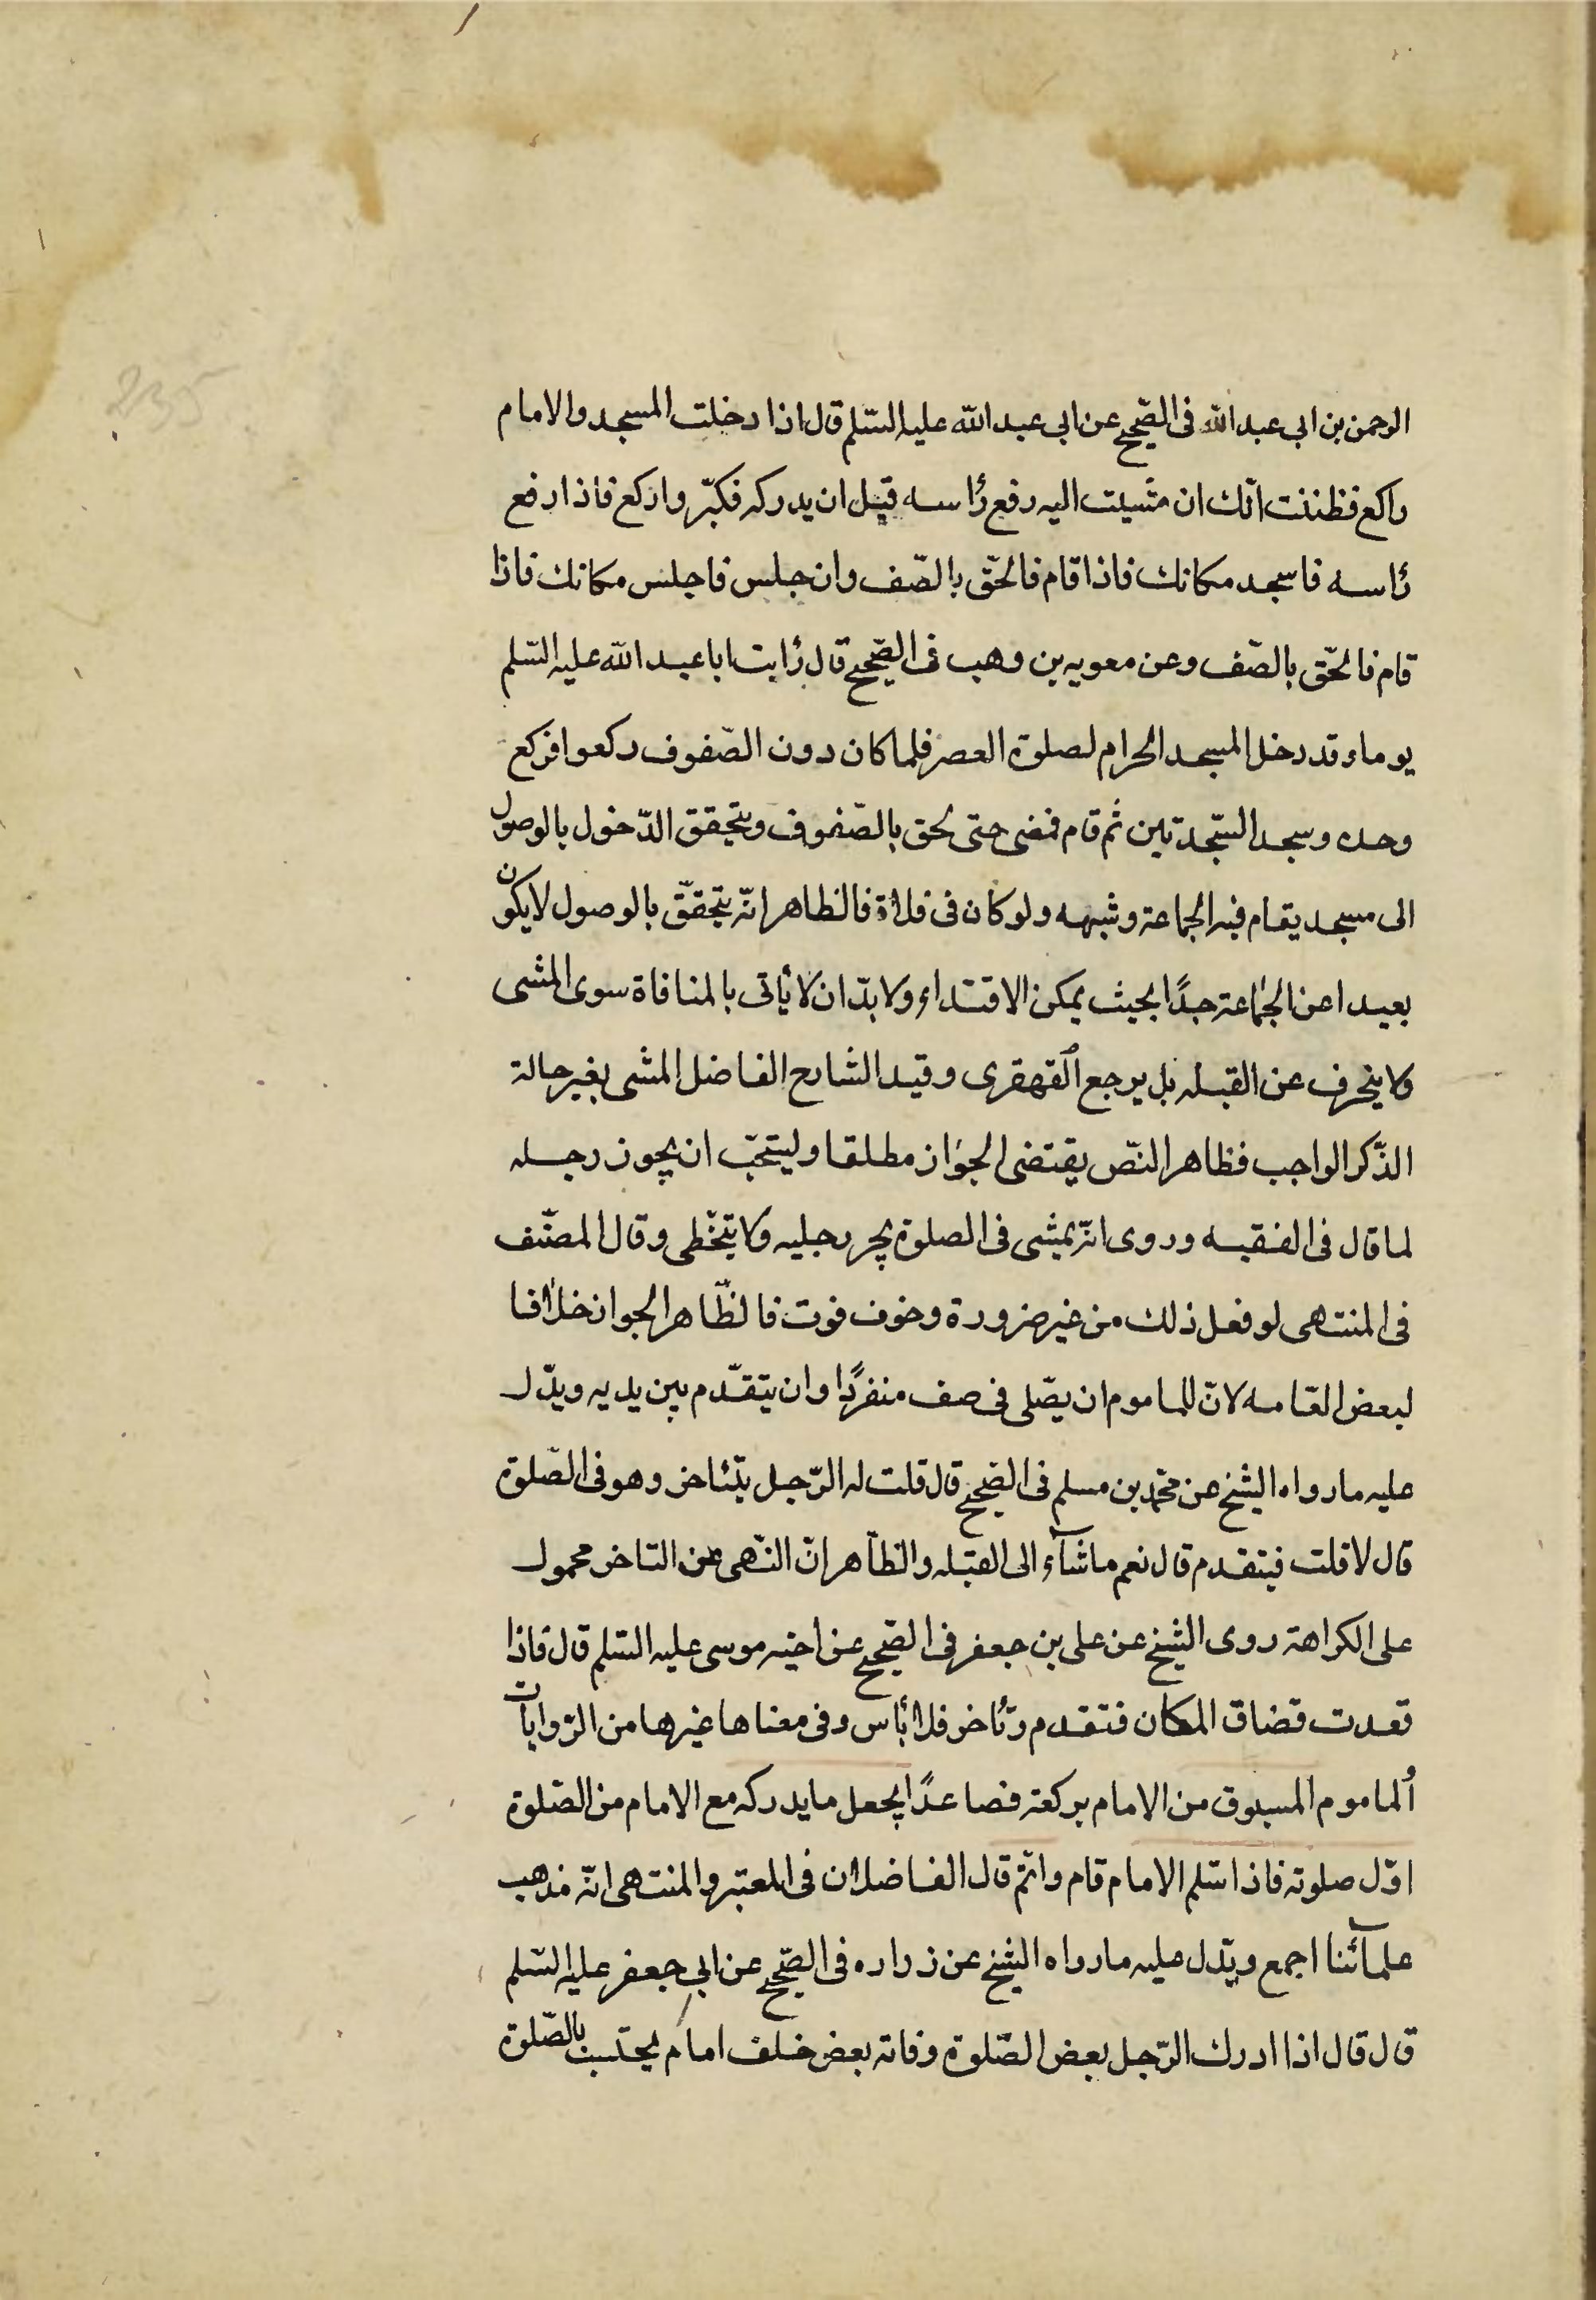 235
الرحمن بن ابى عبد الله فى الصّحيح عن ابى عبد الله عليه السّلم قال اذا دخلت المسجد والامام
راكع فظننت انّك ان مشيت اليه رفع رأسه قبل ان يدركه فكبّر واركع فاذا رفع
رأسه فاسجد مكانك فاذا قام فالحق بالصّف وان جلس فاجلس مكانك فاذا
قام فالحق بالصّف وعن معويه بن وهب فى الصّحيح قال رأيت ابا عبد الله عليه السّلم
يوما وقد دخل المسجد الحرام لصلوة العصر فلما كان دون الصّفوف ركعوا فركع
وحده وسجد السّجدتين ثم قام فمضى حتى لحق بالصّفوف ويتحقق الدّخول بالوصول
الى مسجد يقام فيه الجماعة وشبهه ولو كان فى فلاة فالظاهر انّه يتحقّق بالوصول لا يكون
بعيدا عن الجماعة جدًا بحيث يمكن الاقتداء ولا بدّ ان لا يأتى بالمنافاة سوى المشى
ولا ينحرف عن القبله بل يرجع القهقرى وقيد الشارح الفاضل المشى بغير حالة
الذّكر الواجب فظاهر النصّ يقتضى الجواز مطلقا وليتحبّ ان يجوز رجله
لما قال فى الفقيه وروى انّه يمشى فى الصلوة يجر رجليه ولا يتخّطى وقال المصنّف
فى المنتهى لو فعل ذلك من غير ضرورة وخوف فوت فالظّاهر الجواز خلافا
لبعض العامه لانّ للماموم ان يصّلى فى صف منفردًا وان يتقدّم بين يديه ويدّل
عليه ما رواه الشيخ عن محمّد بن مسلم فى الصّحيح قال قلت له الرّجل يتئاخر وهو فى الصّلوة
قال لا قلت فيتقدم قال نعم ماشآء الى القبله والظّاهر انّ النّهى عن التاخر محمول
على الكراهة روى الشيخ عن على بن جعفر فى الصّحيح عن اخيه موسى عليه السّلم قال فاذا
قعدت فضاق المكان فتقدم وتأخر فلا بأس وفى معناها غيرها من الرّوايات
ألماموم المسبوق من الامام بركعة فصاعدًا يجعل ما يدركه مع الامام من الصّلوة
اوّل صلوته فاذا سّلم الامام قام واتّم قال الفاضلان فى المعتبر والمنتهى انّه مذهب
علمآئنا اجمع ويدّل عليه ما رواه الشيخ عن زراره فى الصّحيح عن ابى جعفر عليه السّلم
قال قال اذا ادرك الرّجل بعض الصّلوة وفاته بعض خلف امام يحتسب بالصّلوة